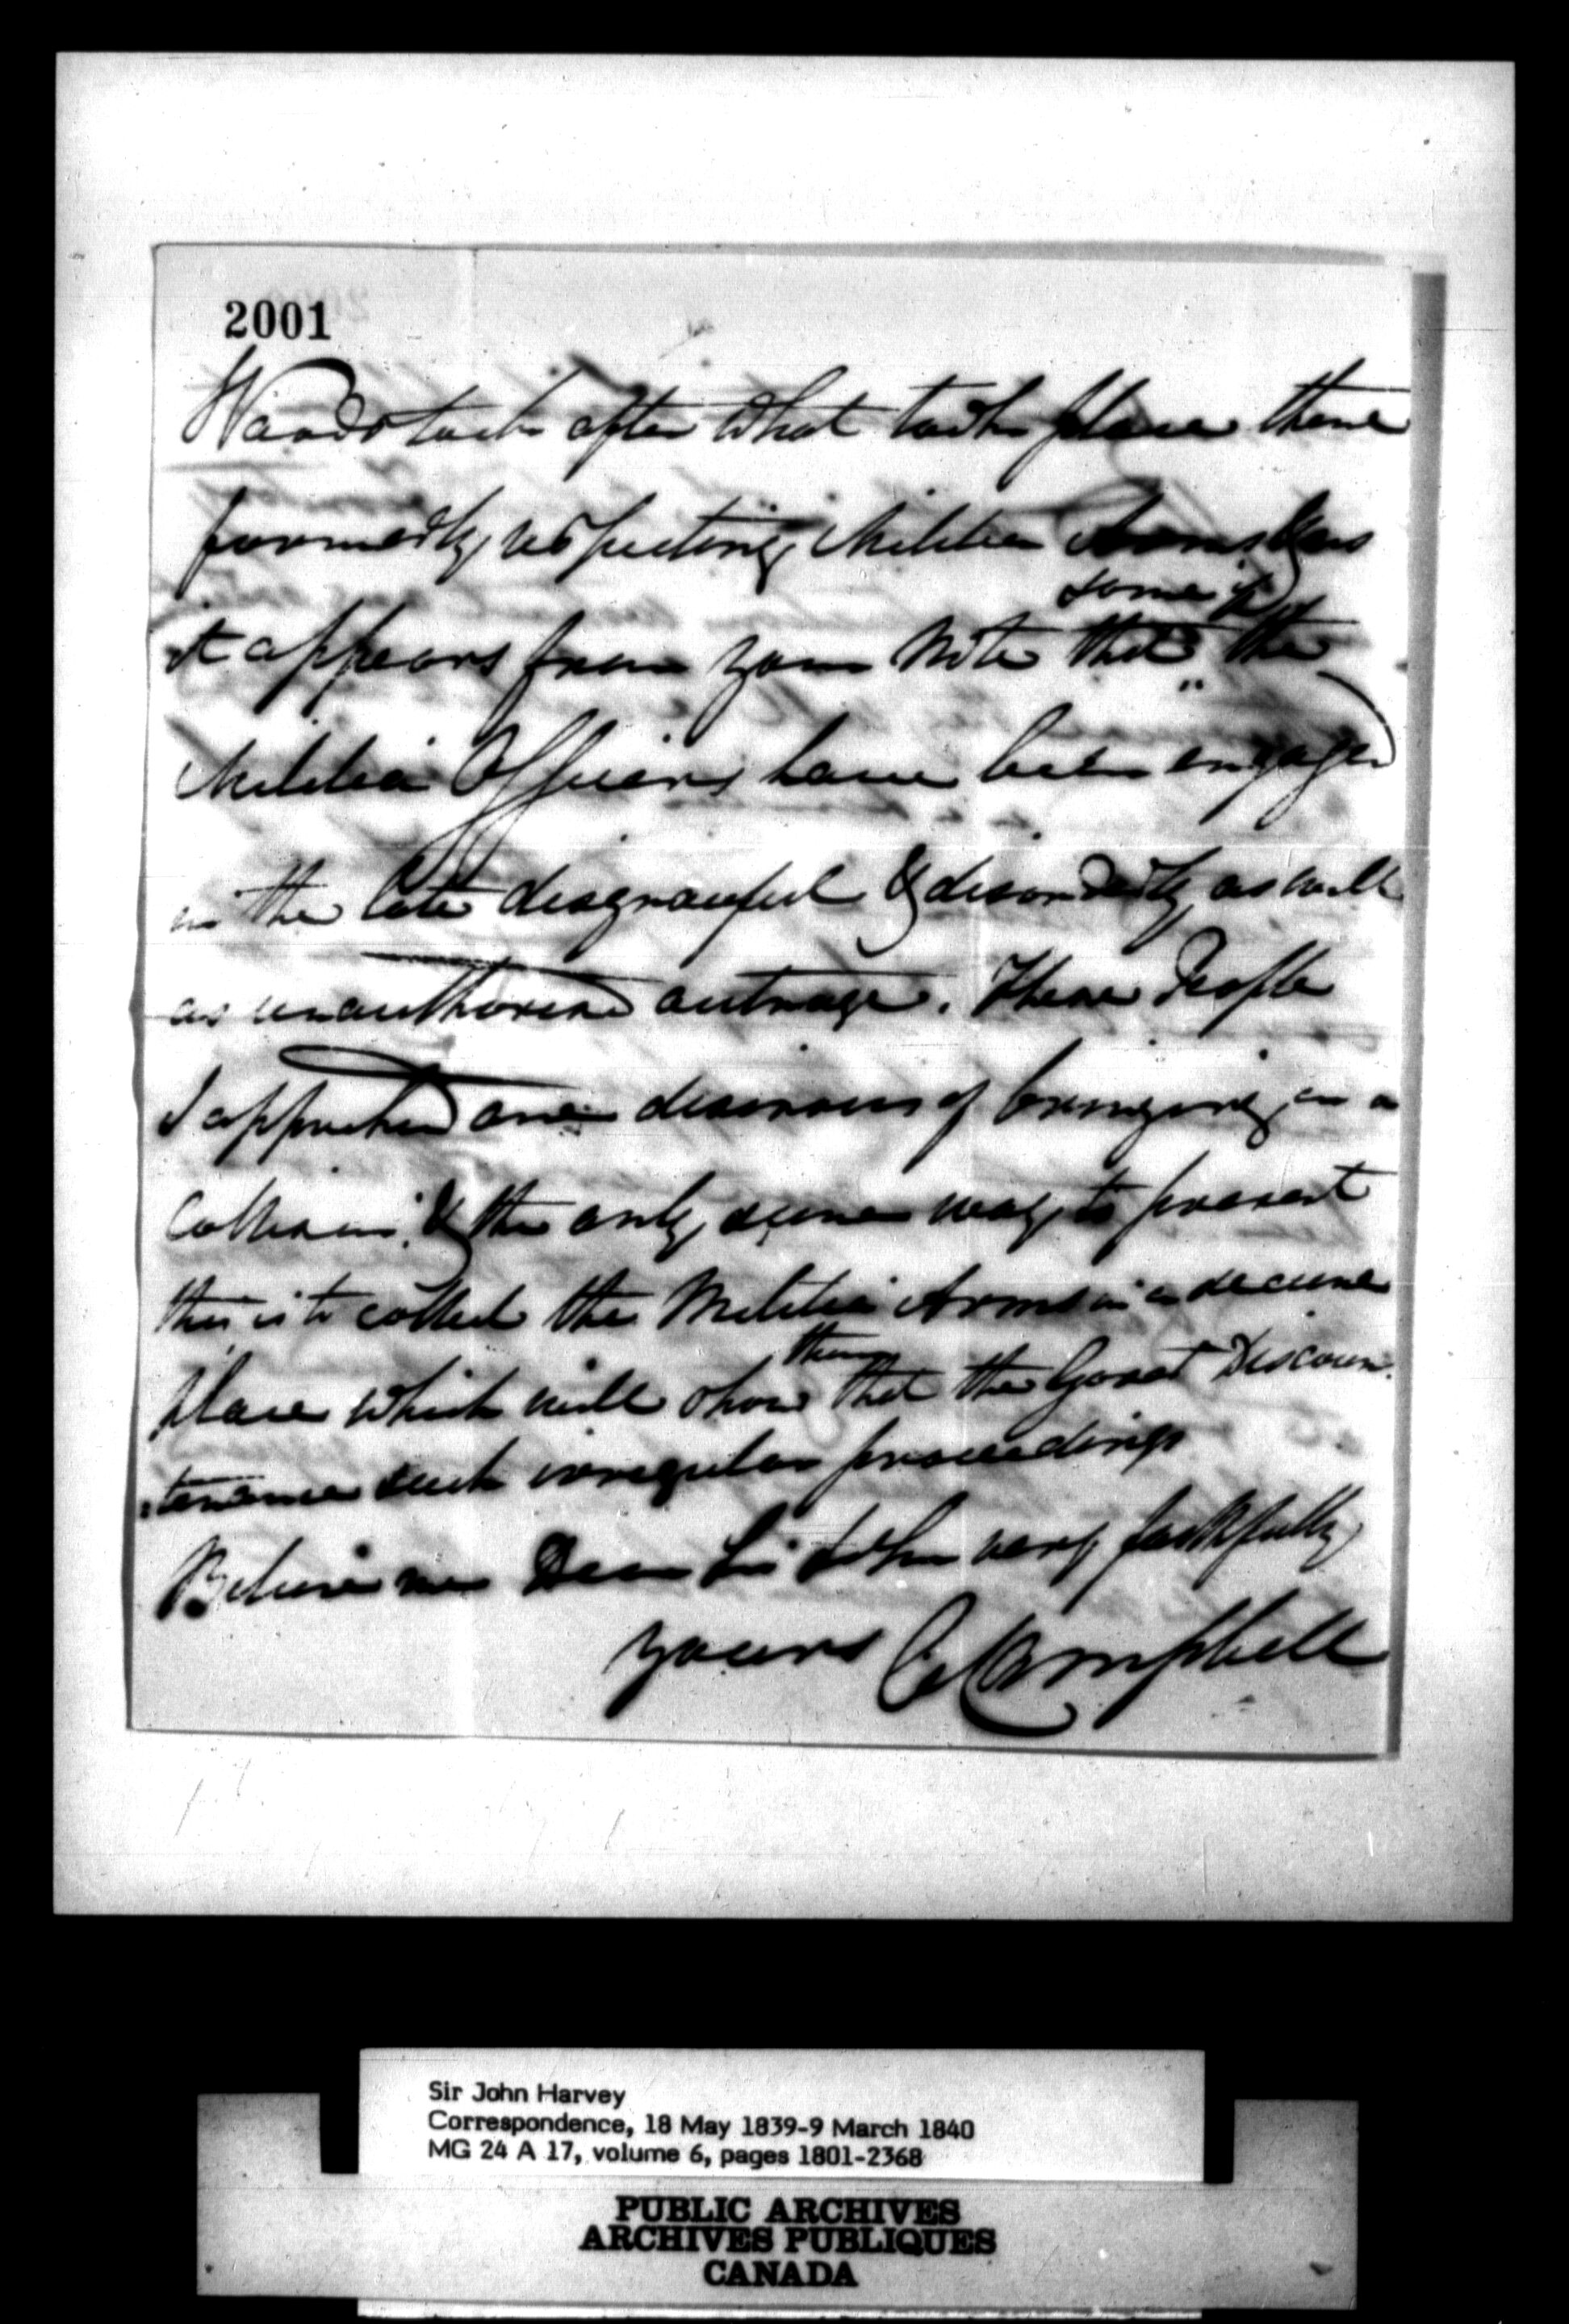 2001
Woodstock after what took place there
formerly, respecting Militia Arms & as
some of
it appears from your Note that the
Militia Officers have been engaged
in the late disgraceful & disorderly, as well
as unauthorised outrage. These People
I apprehend are desirous of bringing on a
Collision, & the only secure way to prevent
this is to collect the Militia Arms in a secure
them
place which will show that the Govt Discoun
tenance such irregular proceedings
Believe me Dear Sir John very faithfully
yours C Campbell
Sir John Harvey
Correspondence, 18 May 1839-9 March 1840
MG 24 A 17, volume 6, pages 1801-2368
PUBLIC ARCHIVES
ARCHIVES PUBLIQUES
CANADA